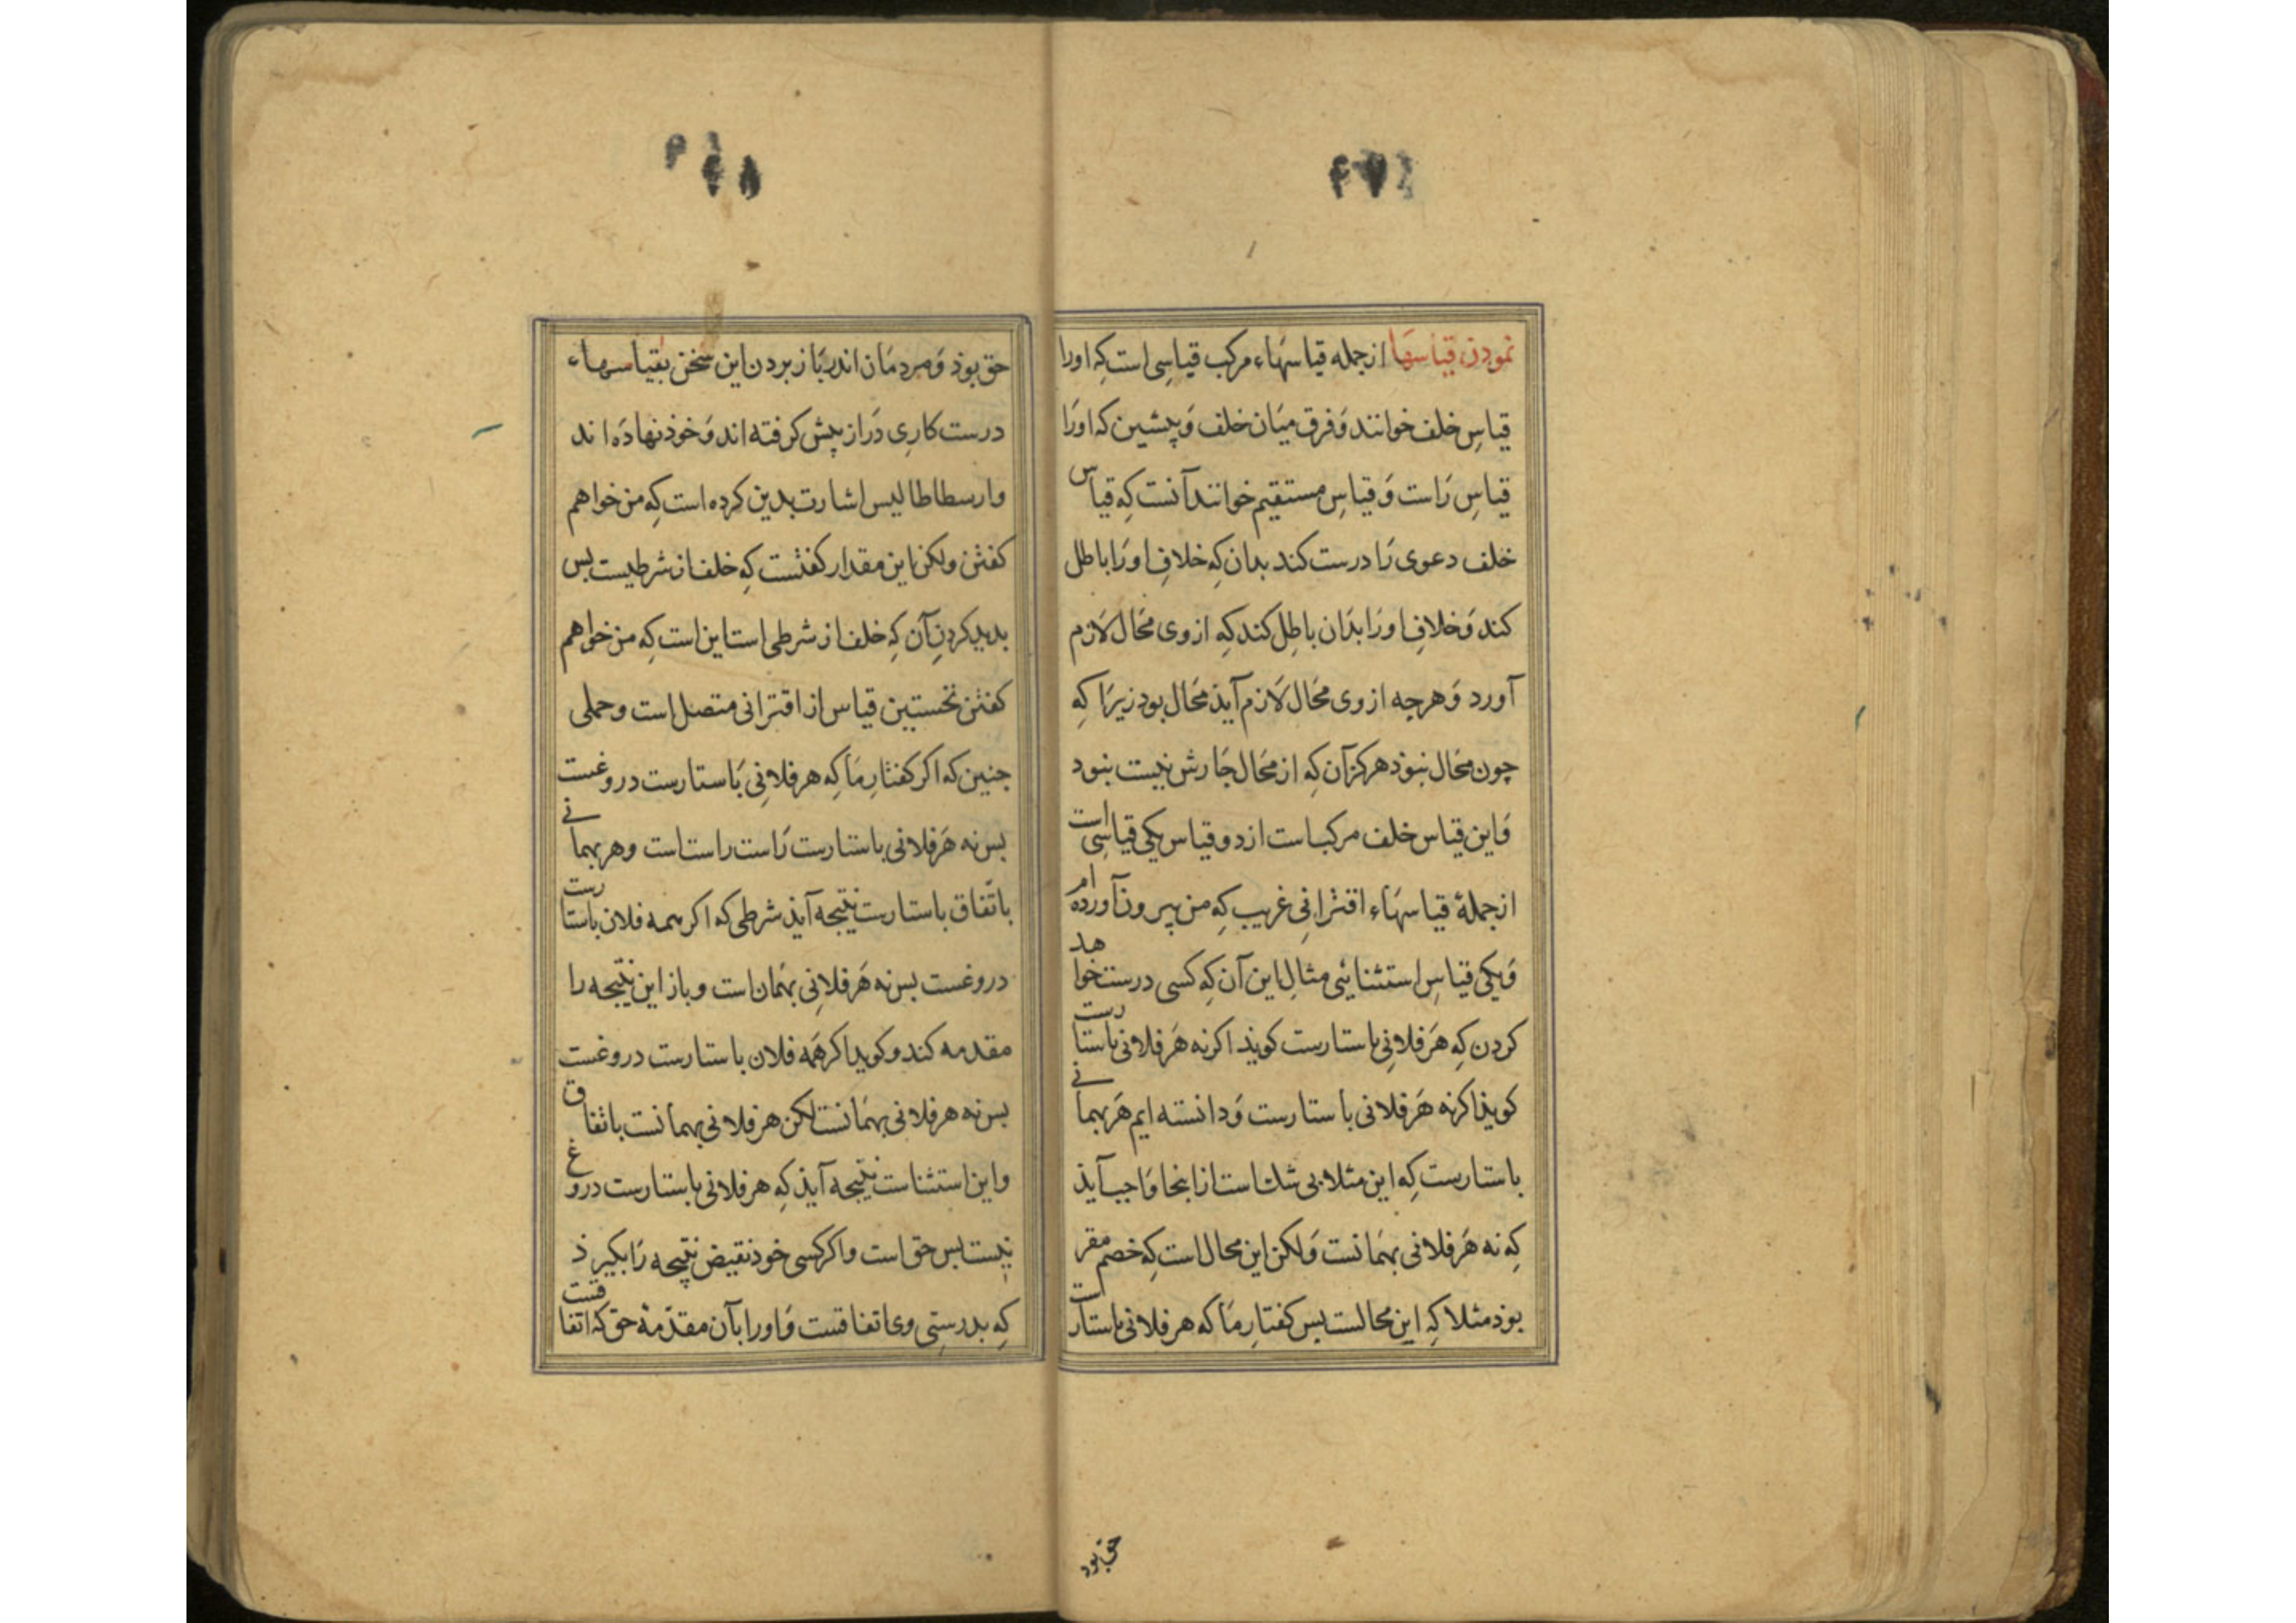 نمودن قیاسها از جمله قیاسهاء مرکب قیاسی است که اورا
قیاسِ خلف خوانند وَفرق میَان خلف وَپیشین که اورَا
قیاسِ رَاست وَقیاسِ مستقیم خوانند آنست کِه قیاس
خلف دعوی رَا درست کند بدان کِه خلافِ اورَا باطل
کند وَخلافِ اورَا بدَان باطِل کند کِه از وی مَحَال لَازم
آورد وَهرچه از وی مَحَال لَازم آیذ مَحَال بود زیرَا کِه
چون مَحَال نبوَد هرکز آن کِه از مَحَال چَارش نیست نبود
وَاین قیاس خلف مرکب است از دو قیاس یکی قیاسِی است
از جملهٔ قیاسهَاء اقترَانِی غریب کِه من بیرون آورده ام
وَیکی قیاسِ استثنایئی مثالِ این آن کِه کسی درست خواهد
کردن کِه هَر فلانِی باستارست کویذ اکر نه هَر فلانی باستارست
کویذ اکر نه هَر فلانی باستارست وَدانسته ایم هَر بهمانی
باستارست کِه این مثلا بی شك است از اینجا وَاجب آیذ
کِه نه هَر فلانی بهمَانست وَلکن این محال است کِه خصم مقر
بوذ مثلا کِه این محالست بس کفتارِ مَا که هر فلانی باستارت
حق بود
حق بوذ وَمردمَان اندر بَاز بردن این سخن بقیاسهاء
درست کارِی دَراز پیش کرفته اند وَخوذ نهادَه اند
وارسطاطالیس اشارت بدین کرده است کِه من خواهم
کفتن ولکن این مقدار کفتست کِه خلف از شرطیست بس
بدید کردنِ آن کِه خلف از شرطی است این است کِه من خواهم
کفتن نخستین قیاس از اقترانی متصل است وحملی
جنین که اکر کفتارِ مَا کِه هر فلانِی بَاستارست دروغست
بس نه هَر فلانی باستارست رَاست راست است وهر بهمانی
باتّفاق باستارست نتیجه آیذ شرطی که اکر همه فلان باستارست
دروغست بس نه هَر فلانِی بهمَان است وباز این نتیجه را
مقدمه کند وکوید اکر همَه فلان باستارست دروغست
بس نه هر فلانی بهمَانست لکن هر فلانی بهمانست باتفاق
واین استثناست نتیجه آیذ کِه هر فلانی باستارست دروغ
نیست بس حق است واکر کسی خوذ نقیض نتیجه رَا بکیرذ
کِه بدرستِی وی اتفاقست وَاورا بآن مقدّمهٔ حق که اتفاقست